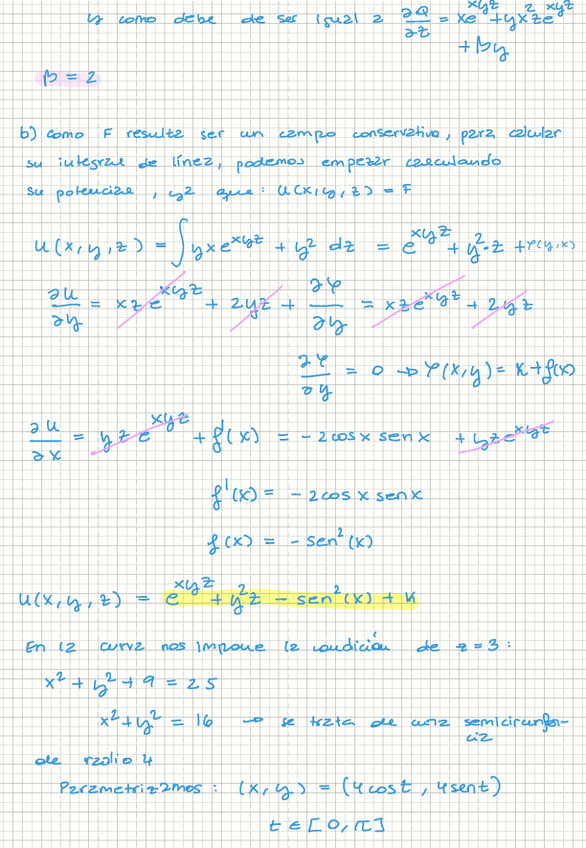 y como debe de ser igual a ∂Q/∂z = xe^xyz + yx²ze^xyz
+ βy
β = 2
b) como F resulta ser un campo conservativo, para calcular
su integral de línea, podemos empezar calculando
su potencial, ya que: U(x,y,z) = F
U(x,y,z) = ∫ yxe^xyz + y² dz = e^xyz + y²·z + φ(y,x)
∂u/∂y = xze^xyz + 2yz + ∂φ/∂y = xze^xyz + 2yz
∂φ/∂y = 0 → φ(x,y) = K + f(x)
∂u/∂x = yze^xyz + f'(x) = -2cosx senx + yze^xyz
f'(x) = -2cosx senx
f(x) = -sen²(x)
U(x,y,z) = e^xyz + y²z - sen²(x) + K
En la curva nos impone la condición de z=3:
x² + y² + 9 = 25
x² + y² = 16 → se trata de una semicircunferencia
de radio 4
Parametrizamos: (x,y) = (4cost, 4sent)
t ∈ [0,π]